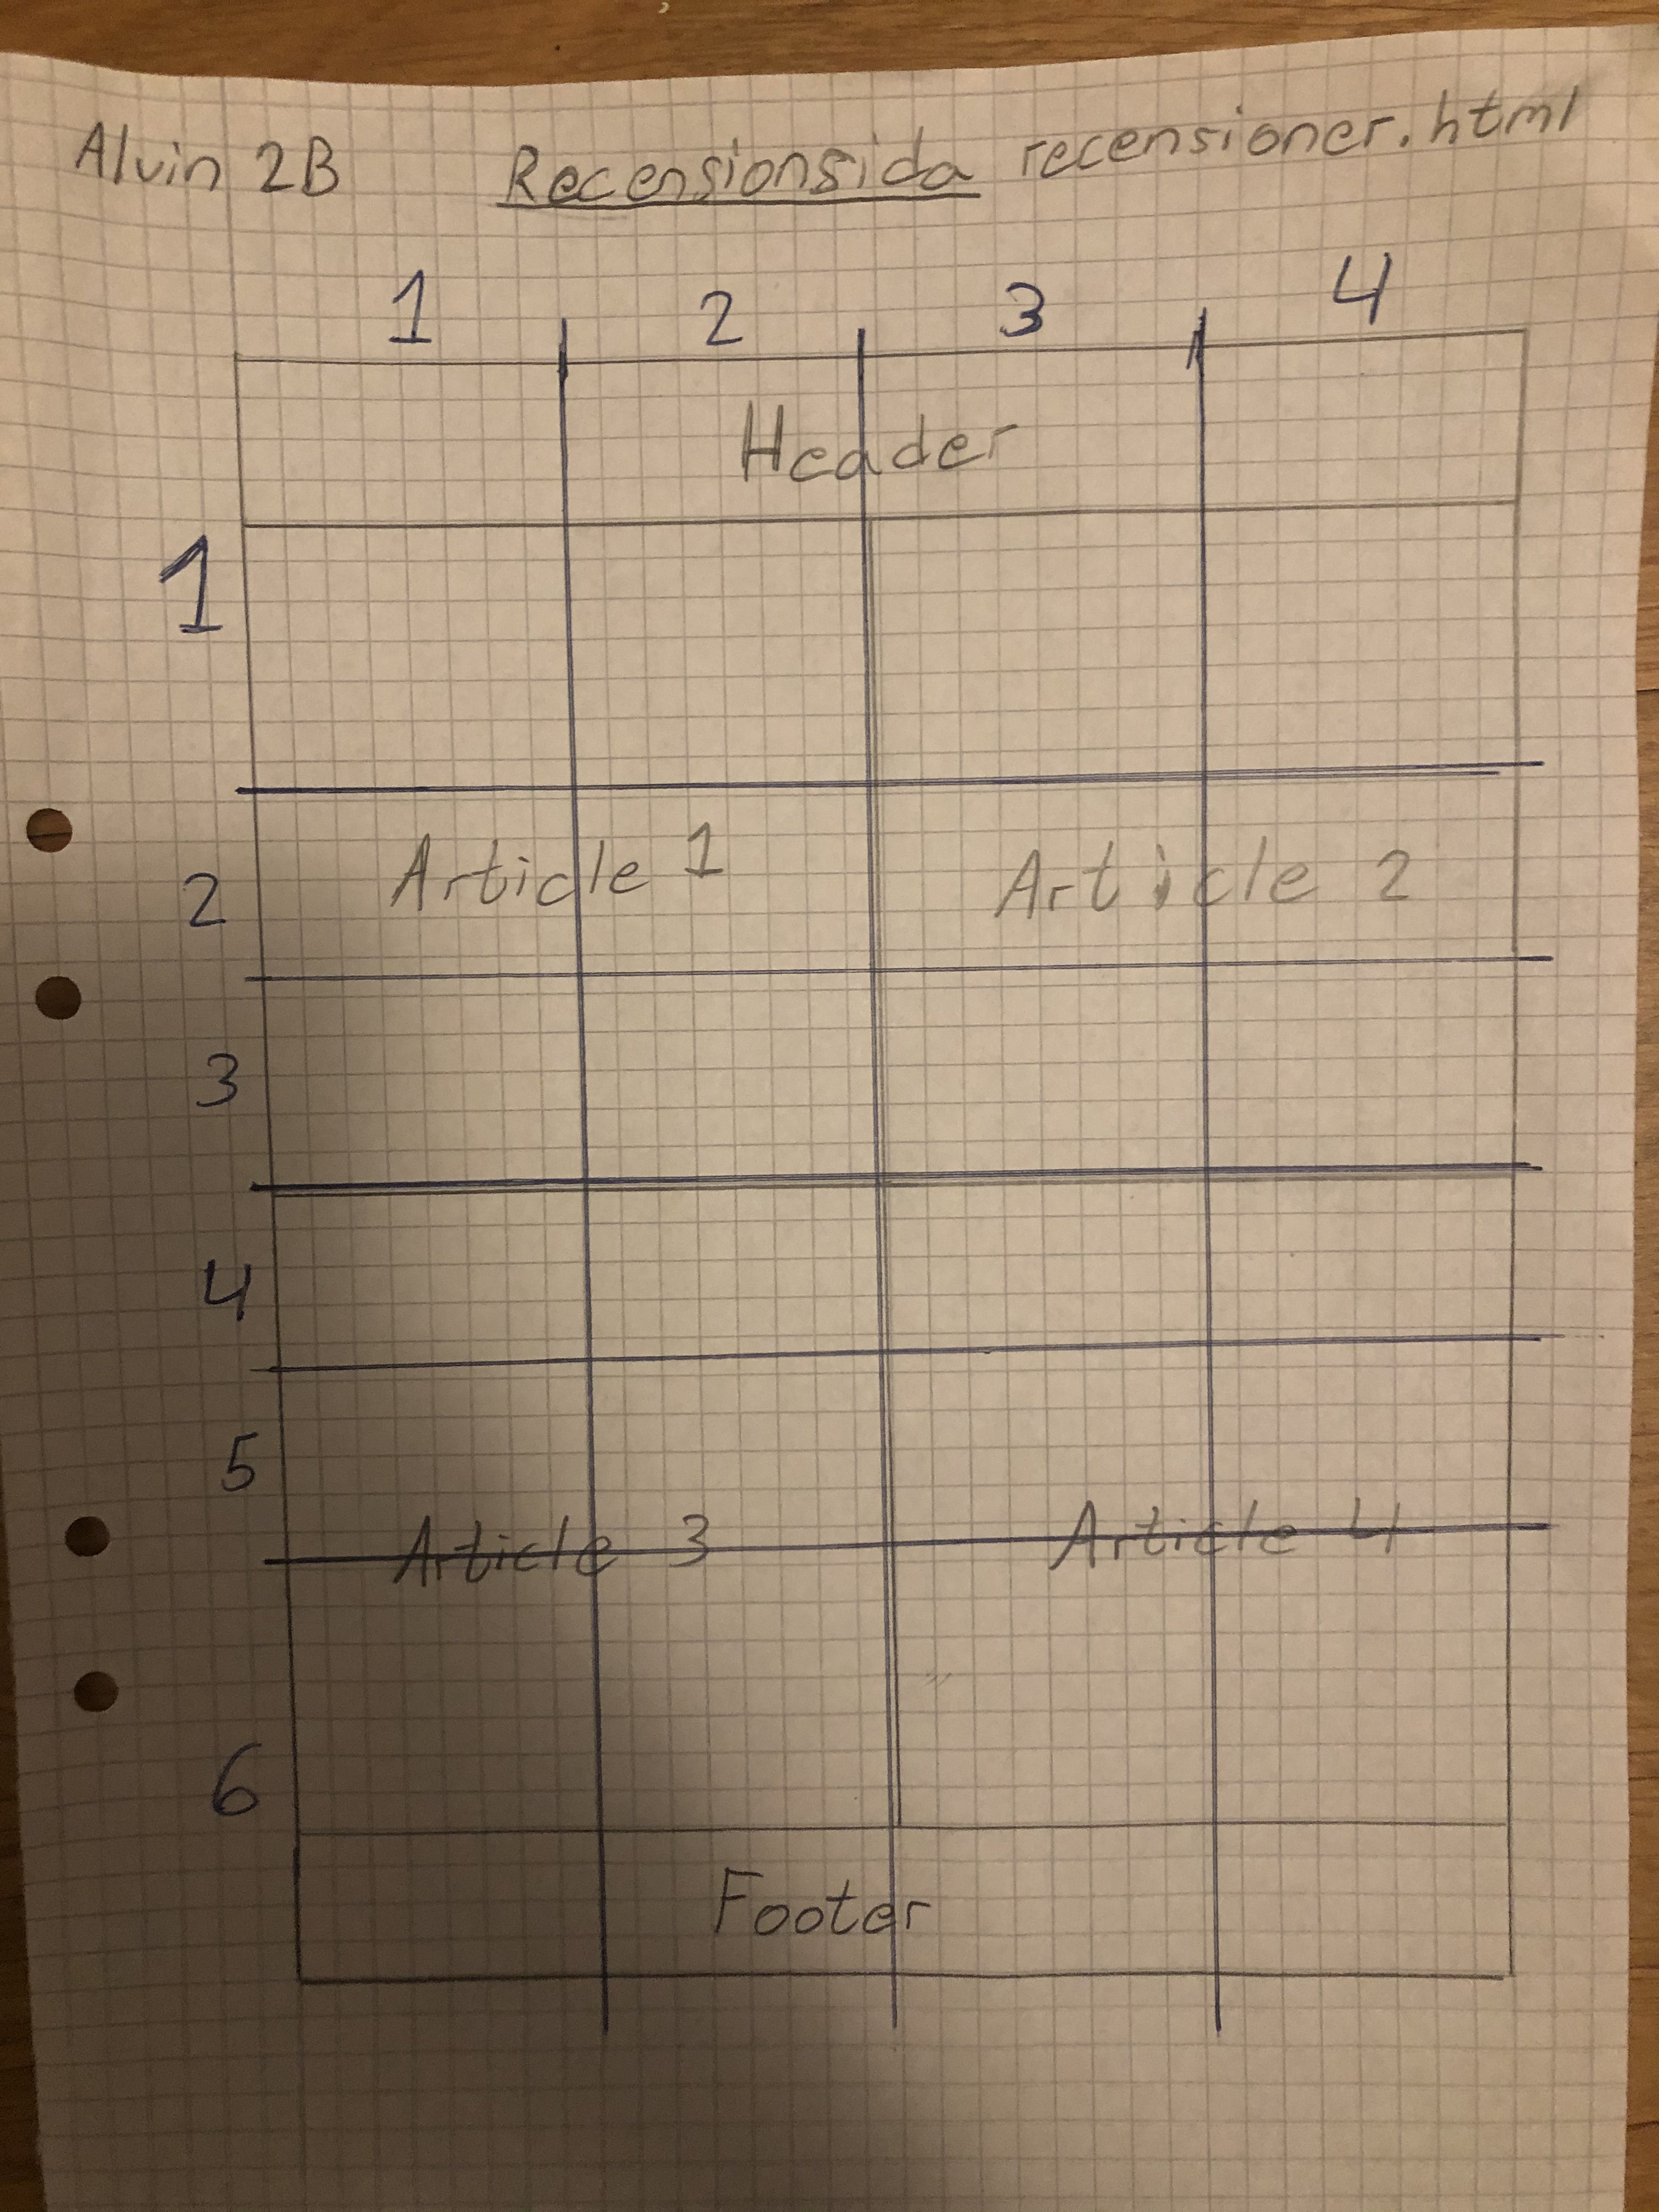 Alvin 2B Recensionsida recensioner.html
1 2 3 4
Header
1
Article 1 Article 2
2
3
4
5
Article 3 Article 4
6
Footer